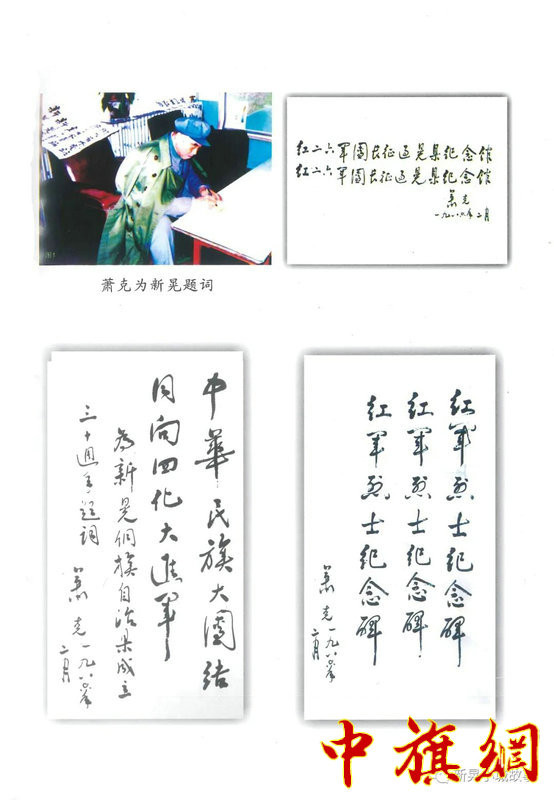 萧克为新晃题词
红二六軍團长征过晃县纪念馆
红二六軍團长征过晃县纪念馆
萧克
二月
中華民族大團结
同向四化大進軍
为新晃侗族自治县成立
三十週年题词
萧克一九八六年
二月
红軍烈士纪念碑
红軍烈士纪念碑
红軍烈士纪念碑
萧克一九八六年
二月
中旗網